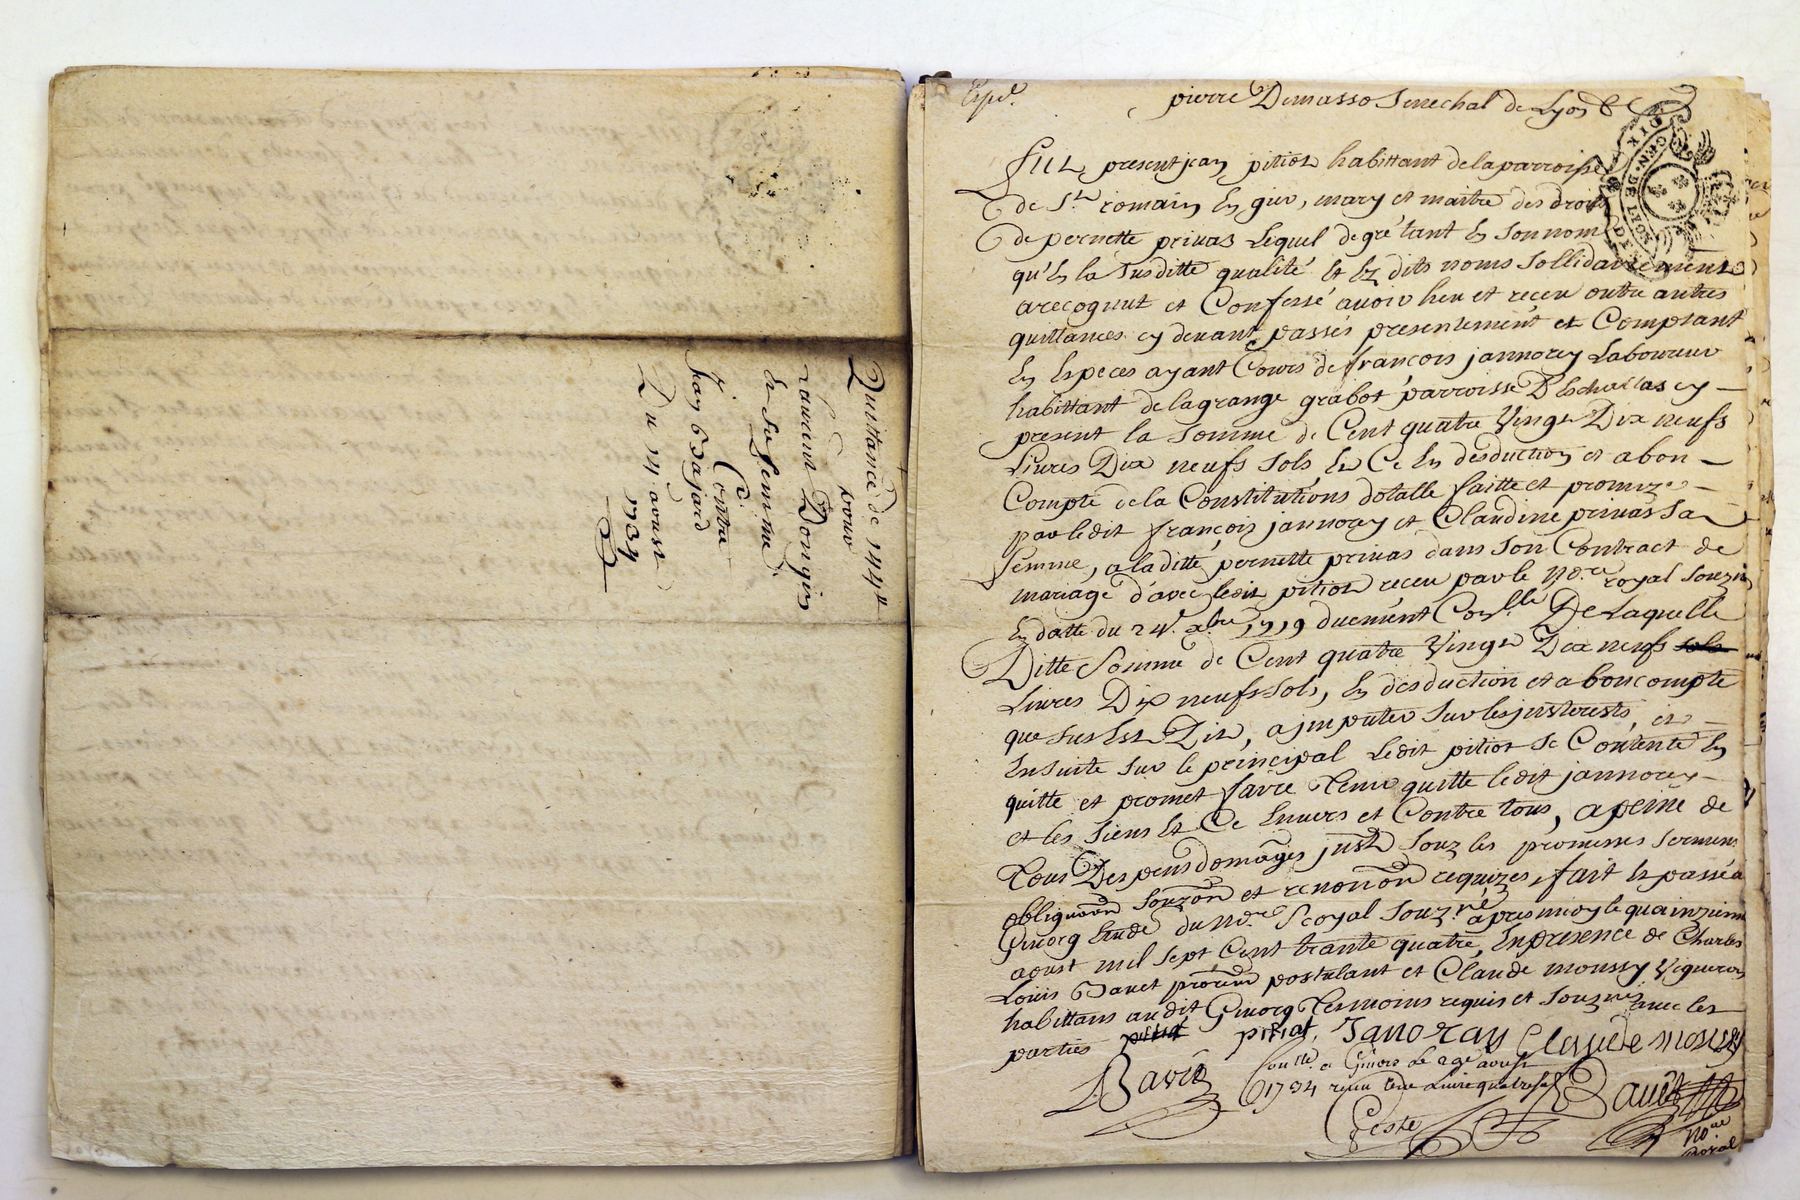 Quittance de 144 ll
pour
Laurent Dongin
et Sa femme
Contre
Jean Bajard
Du 14 aoust
1734
Exped.
pierre Demasso Senechal de Lyon &
Fut present jean pitiot habittant de la parroisse
de St. romain en gier, mary et maitre des droits
de pernette privas Lequel de gré tant En Son nom
qu'En la Susditte qualité Et Ez dits noms Sollidairement
a recognut et Confessé avoir heu et receu outre autres
quittances cy devant passés presentement et Comptant
En Especes ayant Cours de françois jannorey Laboureur
habittant de la grange grabot parroisse D'Echallas cy
present la Somme de Cent quatre Vingt Dix neufs
Livres Dix neufs Sols, Et Ce En desduction et a bon
Compte de la Constitutions dotalle faitte et promize
par ledit françois jannorey et Claudine privas Sa
femme, a laditte pernette privas dans Son Contract de
mariage d'avec ledit pitiot receu par le No.re royal Souz.né
En datte du 24. xbre 1719 duement Con.llé De Laquelle
Ditte Somme de Cent quatre Vingt Dix neufs sols
Livres Dix neufs Sols, En desduction et a bon compte
que Sus Est Dit, a jmputer Sur les jnterests, et
Ensuite Sur le principal Ledit pitiot Se Contente En
quitte et promet faire Tenir quitte ledit jannorey
et les Siens Et Ce Envers et Contre tous, a peine de
Tous Despens domages jnst Souz les promesses Serment
obligaon Souzon et renonon requizes, fait Et passé a
Givorg Etude du No.re Royal Souz.né apres midy le quainzieme
aoust mil Sept Cent trante quatre, En presence de Charles
Louis Bavet procureur postulant et Claude moussy Vigneron
habittans audit Givorg Temoins requis et Souz.nés avec les
parties pitiot pitiot, Janoray Claude mousy
Bavet Con.llé a Givors Le 29e aoust
1734 receu
Bavet
No.re
Royal